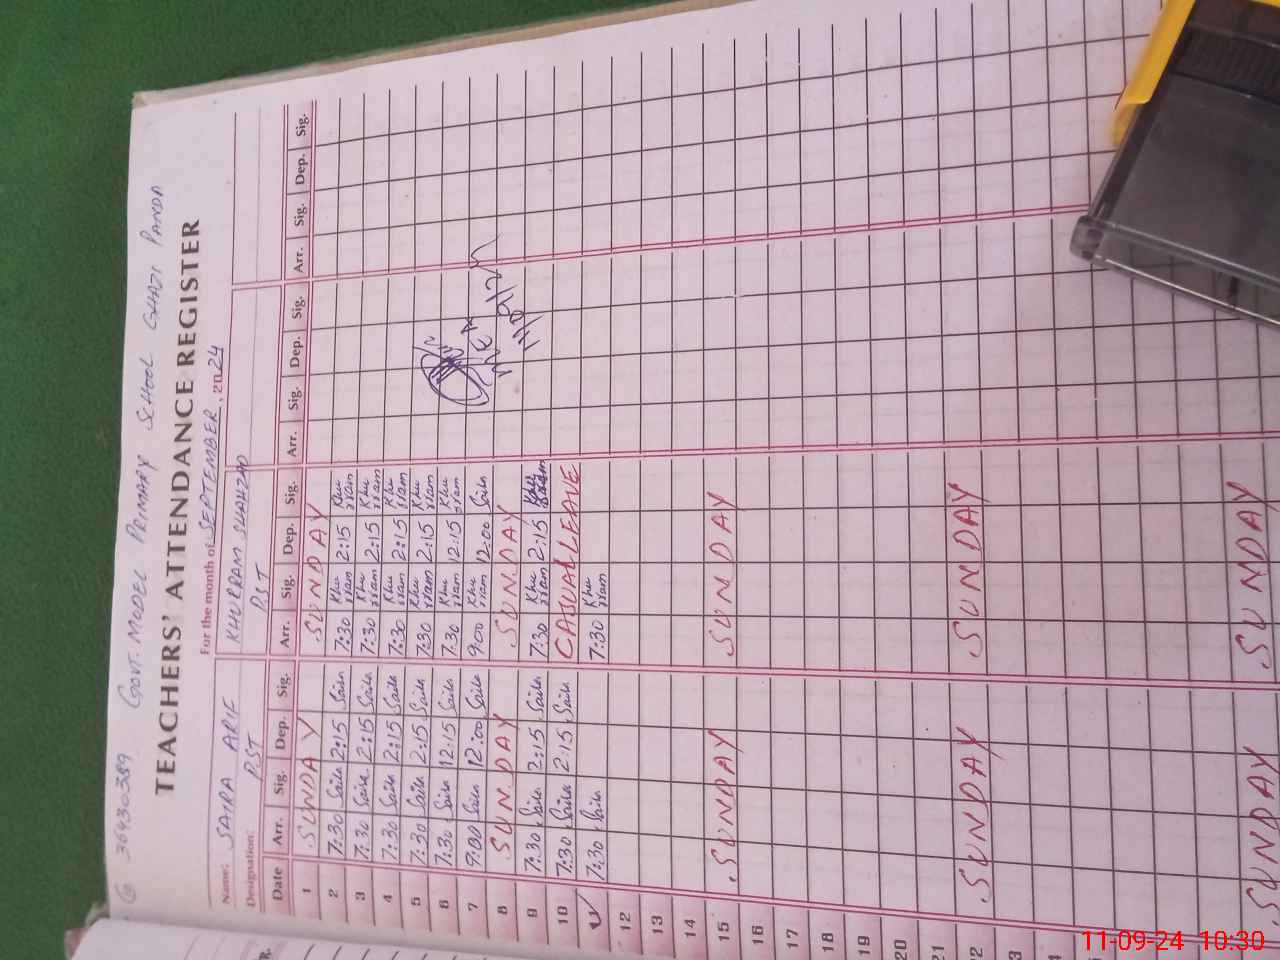 36430389 GOVT. MODEL PRIMARY SCHOOL GHAZI PANDA
TEACHERS' ATTENDANCE REGISTER
For the month of SEPTEMBER, 2024
Name: SAIRA ARIF KHURRAM SHAHZAD
Designation: PST PST
Date Arr. Sig. Dep. Sig. Arr. Sig. Dep. Sig. Arr. Sig. Dep. Sig. Arr. Sig. Dep. Sig.
1 SUNDAY SUNDAY
2 7:30 Saira 2:15 Saira 7:30 Khurram 2:15 Khurram
3 7:30 Saira 2:15 Saira 7:30 Khurram 2:15 Khurram
4 7:30 Saira 2:15 Saira 7:30 Khurram 2:15 Khurram
5 7:30 Saira 2:15 Saira 7:30 Khurram 2:15 Khurram
6 7:30 Saira 12:15 Saira 7:30 Khurram 12:15 Khurram
7 9:00 Saira 12:00 Saira 9:00 Khurram 12:00 Saira
8 SUNDAY SUNDAY
9 7:30 Saira 2:15 Saira 7:30 Khurram 2:15
10 7:30 Saira 2:15 Saira CASUAL LEAVE
7:30 Saira 7:30 Khurram
12
13
14
15 SUNDAY SUNDAY
16
17
18
19
20
21
22 SUNDAY SUNDAY
SUNDAY SUNDAY
11-09-24 10:30